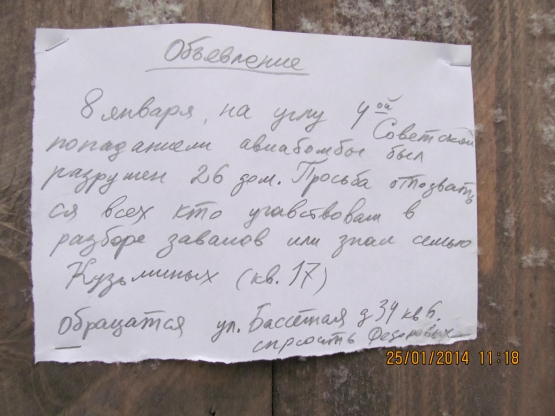 Объевление
8 января, на углу 4ой Советской
попаданием авиабомбы был
разрушен 26 дом. Просьба отозват
ся всех кто учавствовал в
разборе завалов или знал семью
Кузьминых (кв. 17)
Обращатся ул. Бассеная д 34 кв 6.
спросить Федоровых
25/01/2014 11:18